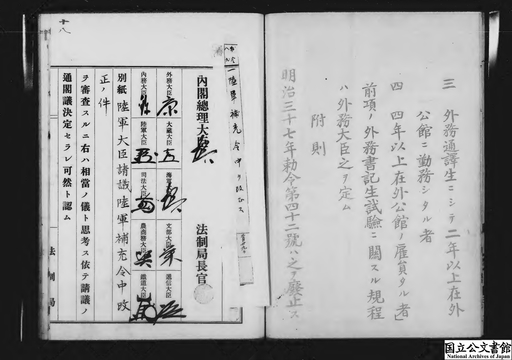 三　外務通譯生ニシテ二年以上在外
公館ニ勤務シタル者
四　四年以上在外公館ノ雇員タル者」
前項ノ外務書記生試驗ニ關スル規程
ハ外務大臣之ヲ定ム
附則
明治三十七年勅令第四十二號ハ之ヲ廢止ス
一陸軍補充令中ヲ改正ス
内閣總理大臣
法制局長官
外務大臣
大藏大臣
海軍大臣
文部大臣
遞信大臣
内務大臣
陸軍大臣
司法大臣
農商務大臣
鐵道大臣
別紙陸軍大臣請議陸軍補充令中改
正ノ件
ヲ審査スルニ右ハ相當ノ儀ト思考ス依テ請議ノ
通閣議決定セラレ可然ト認ム
法制局
十八
国立公文書館
National Archives of Japan